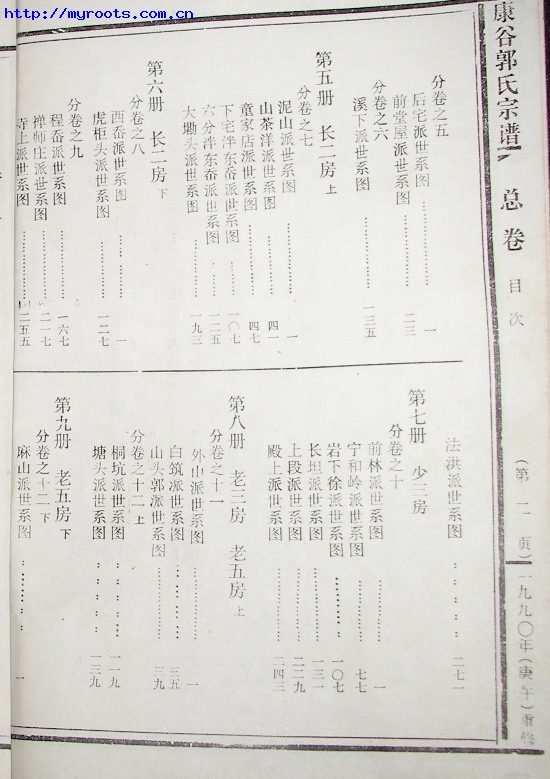 http://myroots.com.cn
康谷郭氏宗谱
总卷
目次
(第二页)
一九九〇年(庚午)重修
分卷之五
后宅派世系图 一
前堂屋派世系图 二三
分卷之六
溪下派世系图 一三五
第五册 长二房 上
分卷之七
泥山派世系图 一
山茶洋派世系图 四一
童家店派世系图 四七
下宅泮东岙派世系图 一〇七
六分泮东岙派世系图 一二五
大墈头派世系图 一九三
第六册 长二房 下
分卷之八
西岙派世系图 一
虎柜头派世系图 一二七
分卷之九
程岙派世系图 一六七
禅师庄派世系图 二一七
寺上派世系图 二五五
法洪派世系图 二七一
第七册 少三房
分卷之十
前林派世系图 一
宁和岭派世系图 七七
岩下徐派世系图 一〇七
长坦派世系图 一三一
上段派世系图 二二九
殿上派世系图 二四三
第八册 老三房 老五房 上
分卷之十一
外山派世系图 一
白筑派世系图 三五
山头郭派世系图 三九
分卷之十二 上
桐坑派世系图 一一九
塘头派世系图 一三九
第九册 老五房 下
分卷之十二 下
麻山派世系图 一